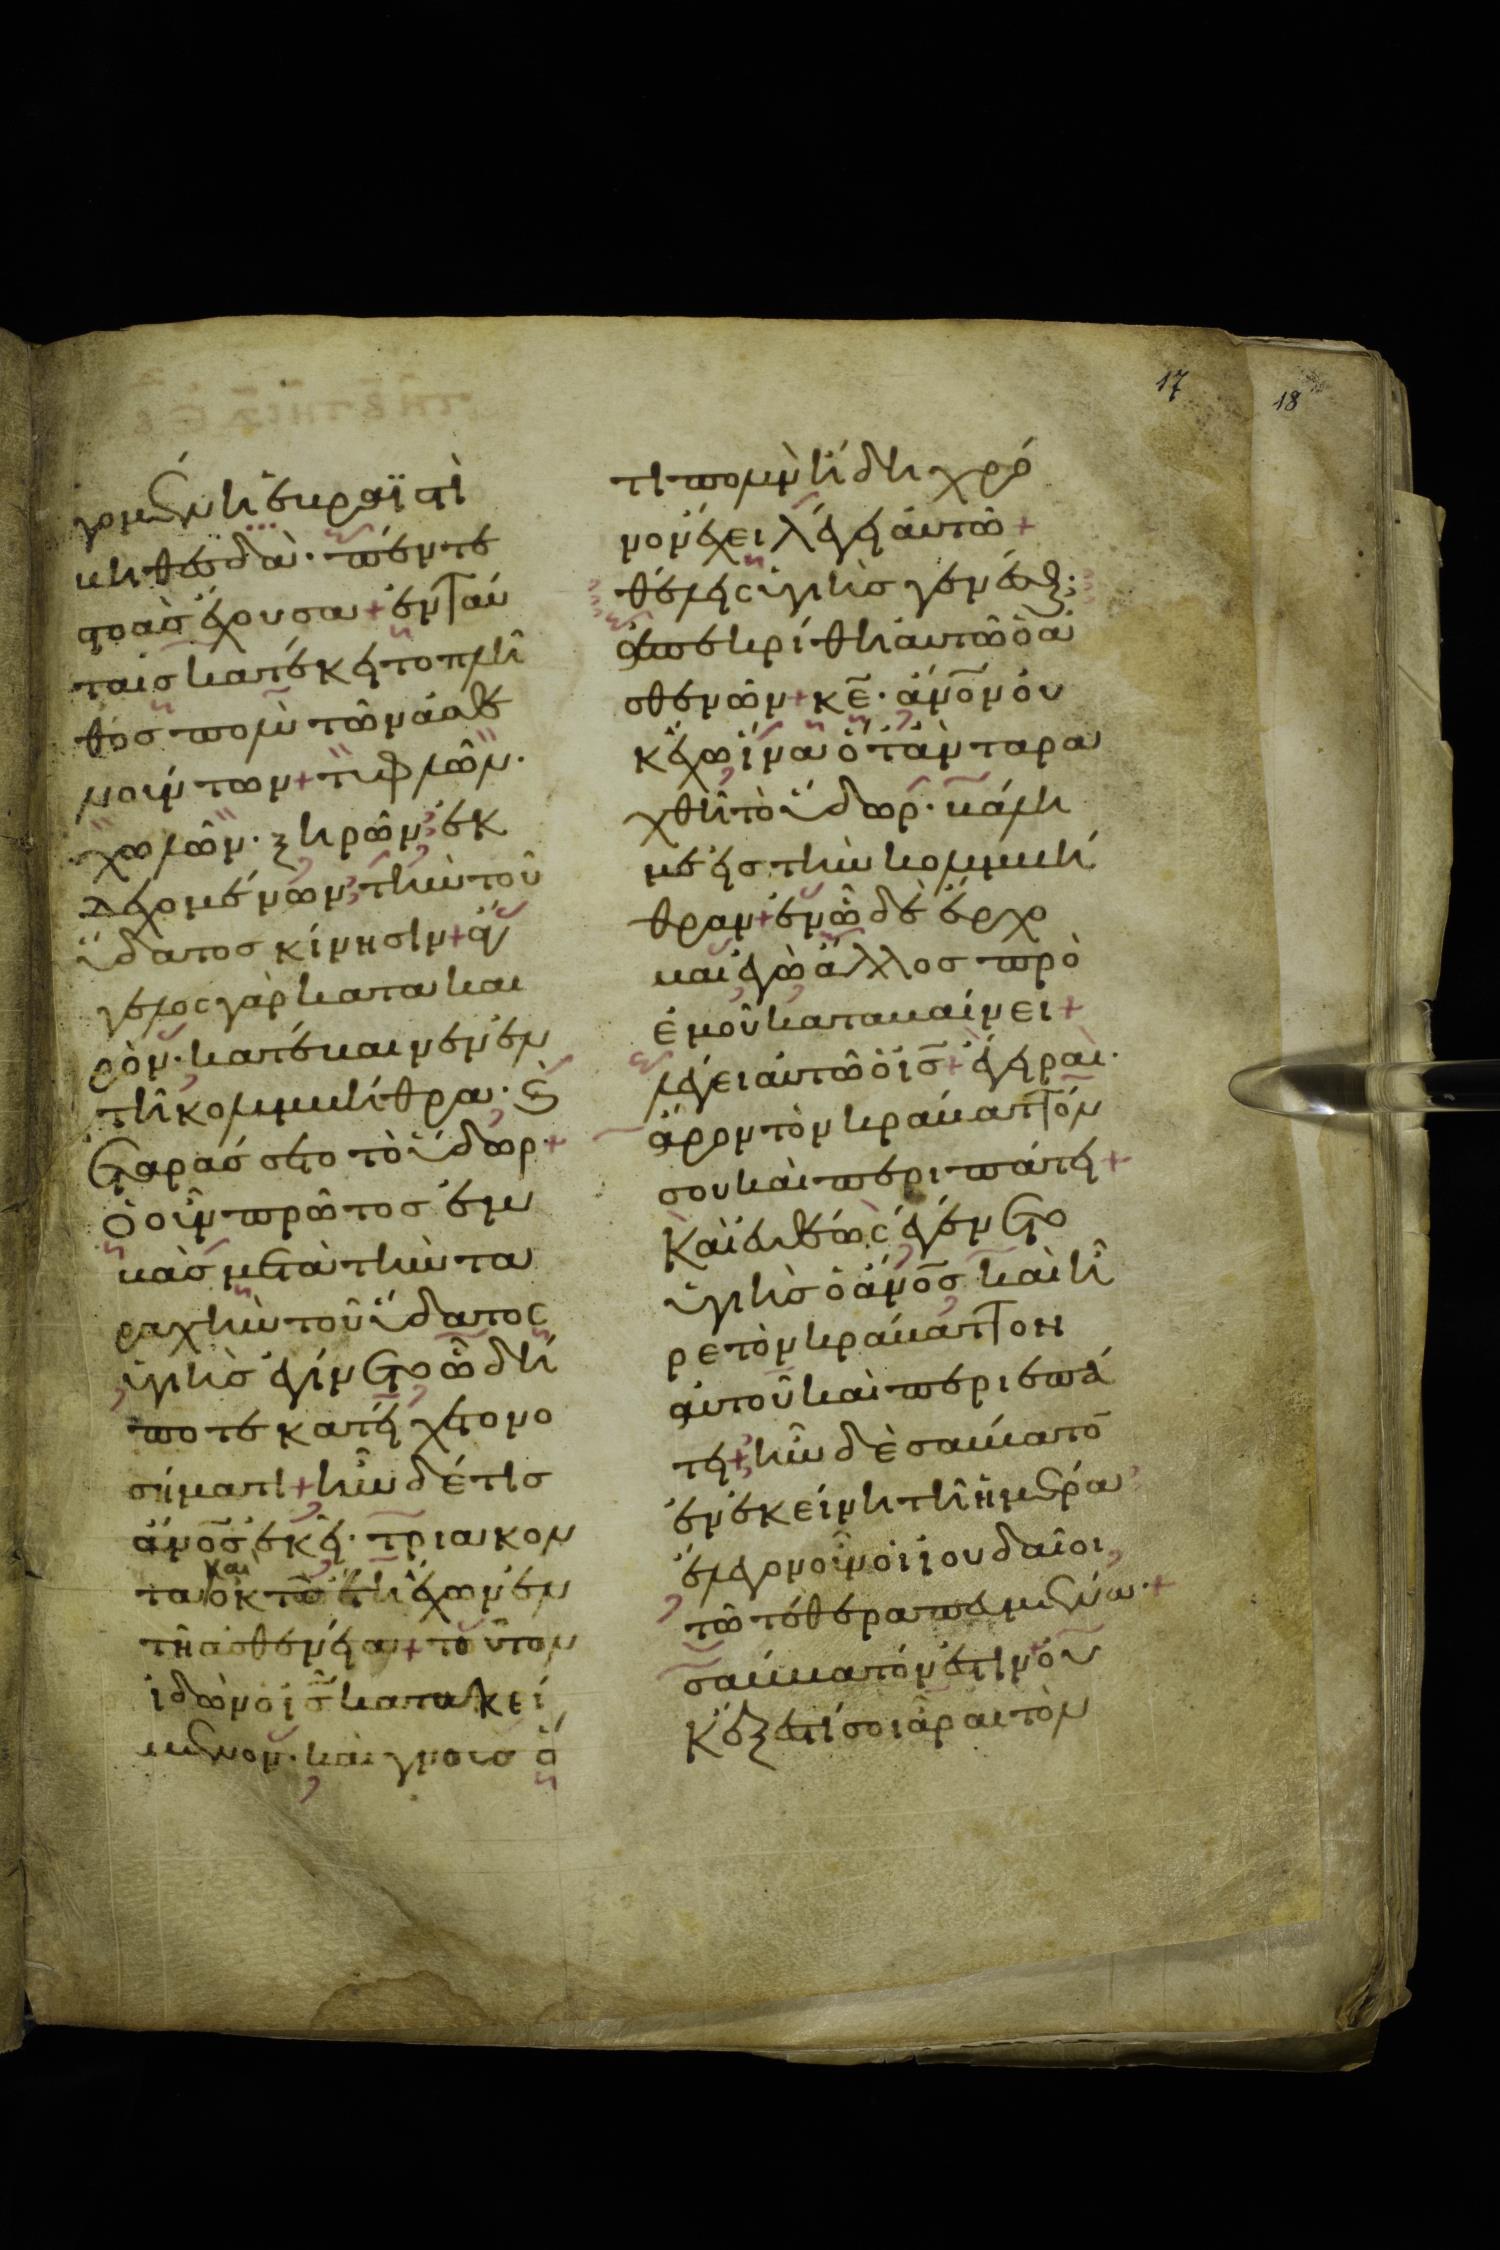 17
18
γομένη ἑβραϊστὶ
βηθεσδὰ· πέντε
στοὰς ἔχουσα + ἐν ταύ
ταις κατέκειτο πλῆ
θος πολὺ τῶν ἀσθε
νούντων + τυφλῶν·
χωλῶν· ξηρῶν, ἐκ
δεχομένων, τὴν τοῦ
ὕδατος κίνησιν + ἄγ
γελος γὰρ κατὰ και
ρὸν· κατέβαινεν ἐν
τῆ κολυμβήθρα· ἐ
ταράσσετο τὸ ὕδωρ +
ὁ οὖν πρῶτος ἐμ
βὰς μετὰ τὴν τα
ραχὴν τοῦ ὕδατος
ὑγιὴς ἐγίνετο ὧ δή
ποτε κατείχετο νο
σήματι + ἦν δέ τις
ἄνος ἐκεῖ· τριακον
τα καὶ ὀκτὼ ἔτη ἔχων ἐν
τῆ ἀσθενεία + τοῦτον
ἰδὼν ὁ ις κατακεί
μενον· καὶ γνοὺς ὅ
τι πολὺν ἤδη χρό
νον ἔχει λέγει αὐτῶ +
θέλεις ὑγιὴς γενέσθαι;
ἀπεκρίθη αὐτῶ ὁ ἀ
σθενῶν + κε· ἄνον οὐ
κ ἔχω ἵνα ὅταν ταρα
χθῆ τὸ ὕδωρ· βάλη
με εἰς τὴν κολυμβή
θραν + ἐν ὧ δὲ ἔρχο
μαι ἐγὼ ἄλλος πρὸ
ἐμοῦ καταβαίνει +
λέγει αὐτῶ ὁ ις + ἔγειραι·
ἆρον τὸν κράβαττόν
σου καὶ περιπάτει +
Καὶ εὐθέως ἐγένετο
ὑγιὴς ὁ ἄνος καὶ ἦ
ρε τὸν κράβαττον
αὐτοῦ καὶ περιεπά
τει + ἦν δὲ σάββατο
ἐν ἐκείνη τῆ ἡμέρα
ἔλεγον οὖν οἱ ἰουδαῖοι
τῶ τεθεραπευμένω· +
σάββατόν ἐστιν οὐ
κ ἔξεστί σοι ἆραι τὸν